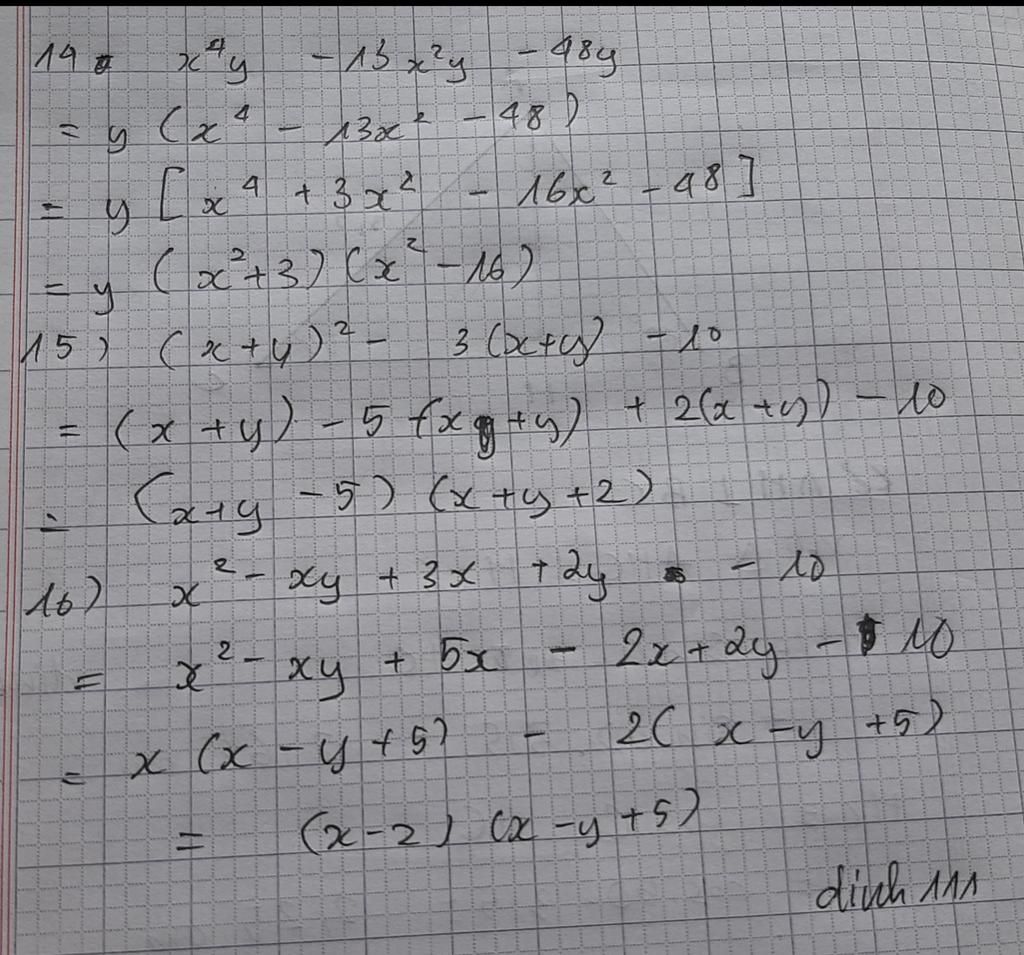 14. x⁴y - 13x²y - 48y
= y (x⁴ - 13x² - 48)
= y [x⁴ + 3x² - 16x² - 48]
= y (x²+3)(x²-16)
15) (x+y)² - 3(x+y) - 10
= (x+y) - 5(x+y) + 2(x+y) - 10
= (x+y-5)(x+y+2)
16) x² - xy + 3x + 2y - 10
= x² - xy + 5x - 2x + 2y - 10
= x (x-y+5) - 2(x-y+5)
= (x-2)(x-y+5)
dinh 111